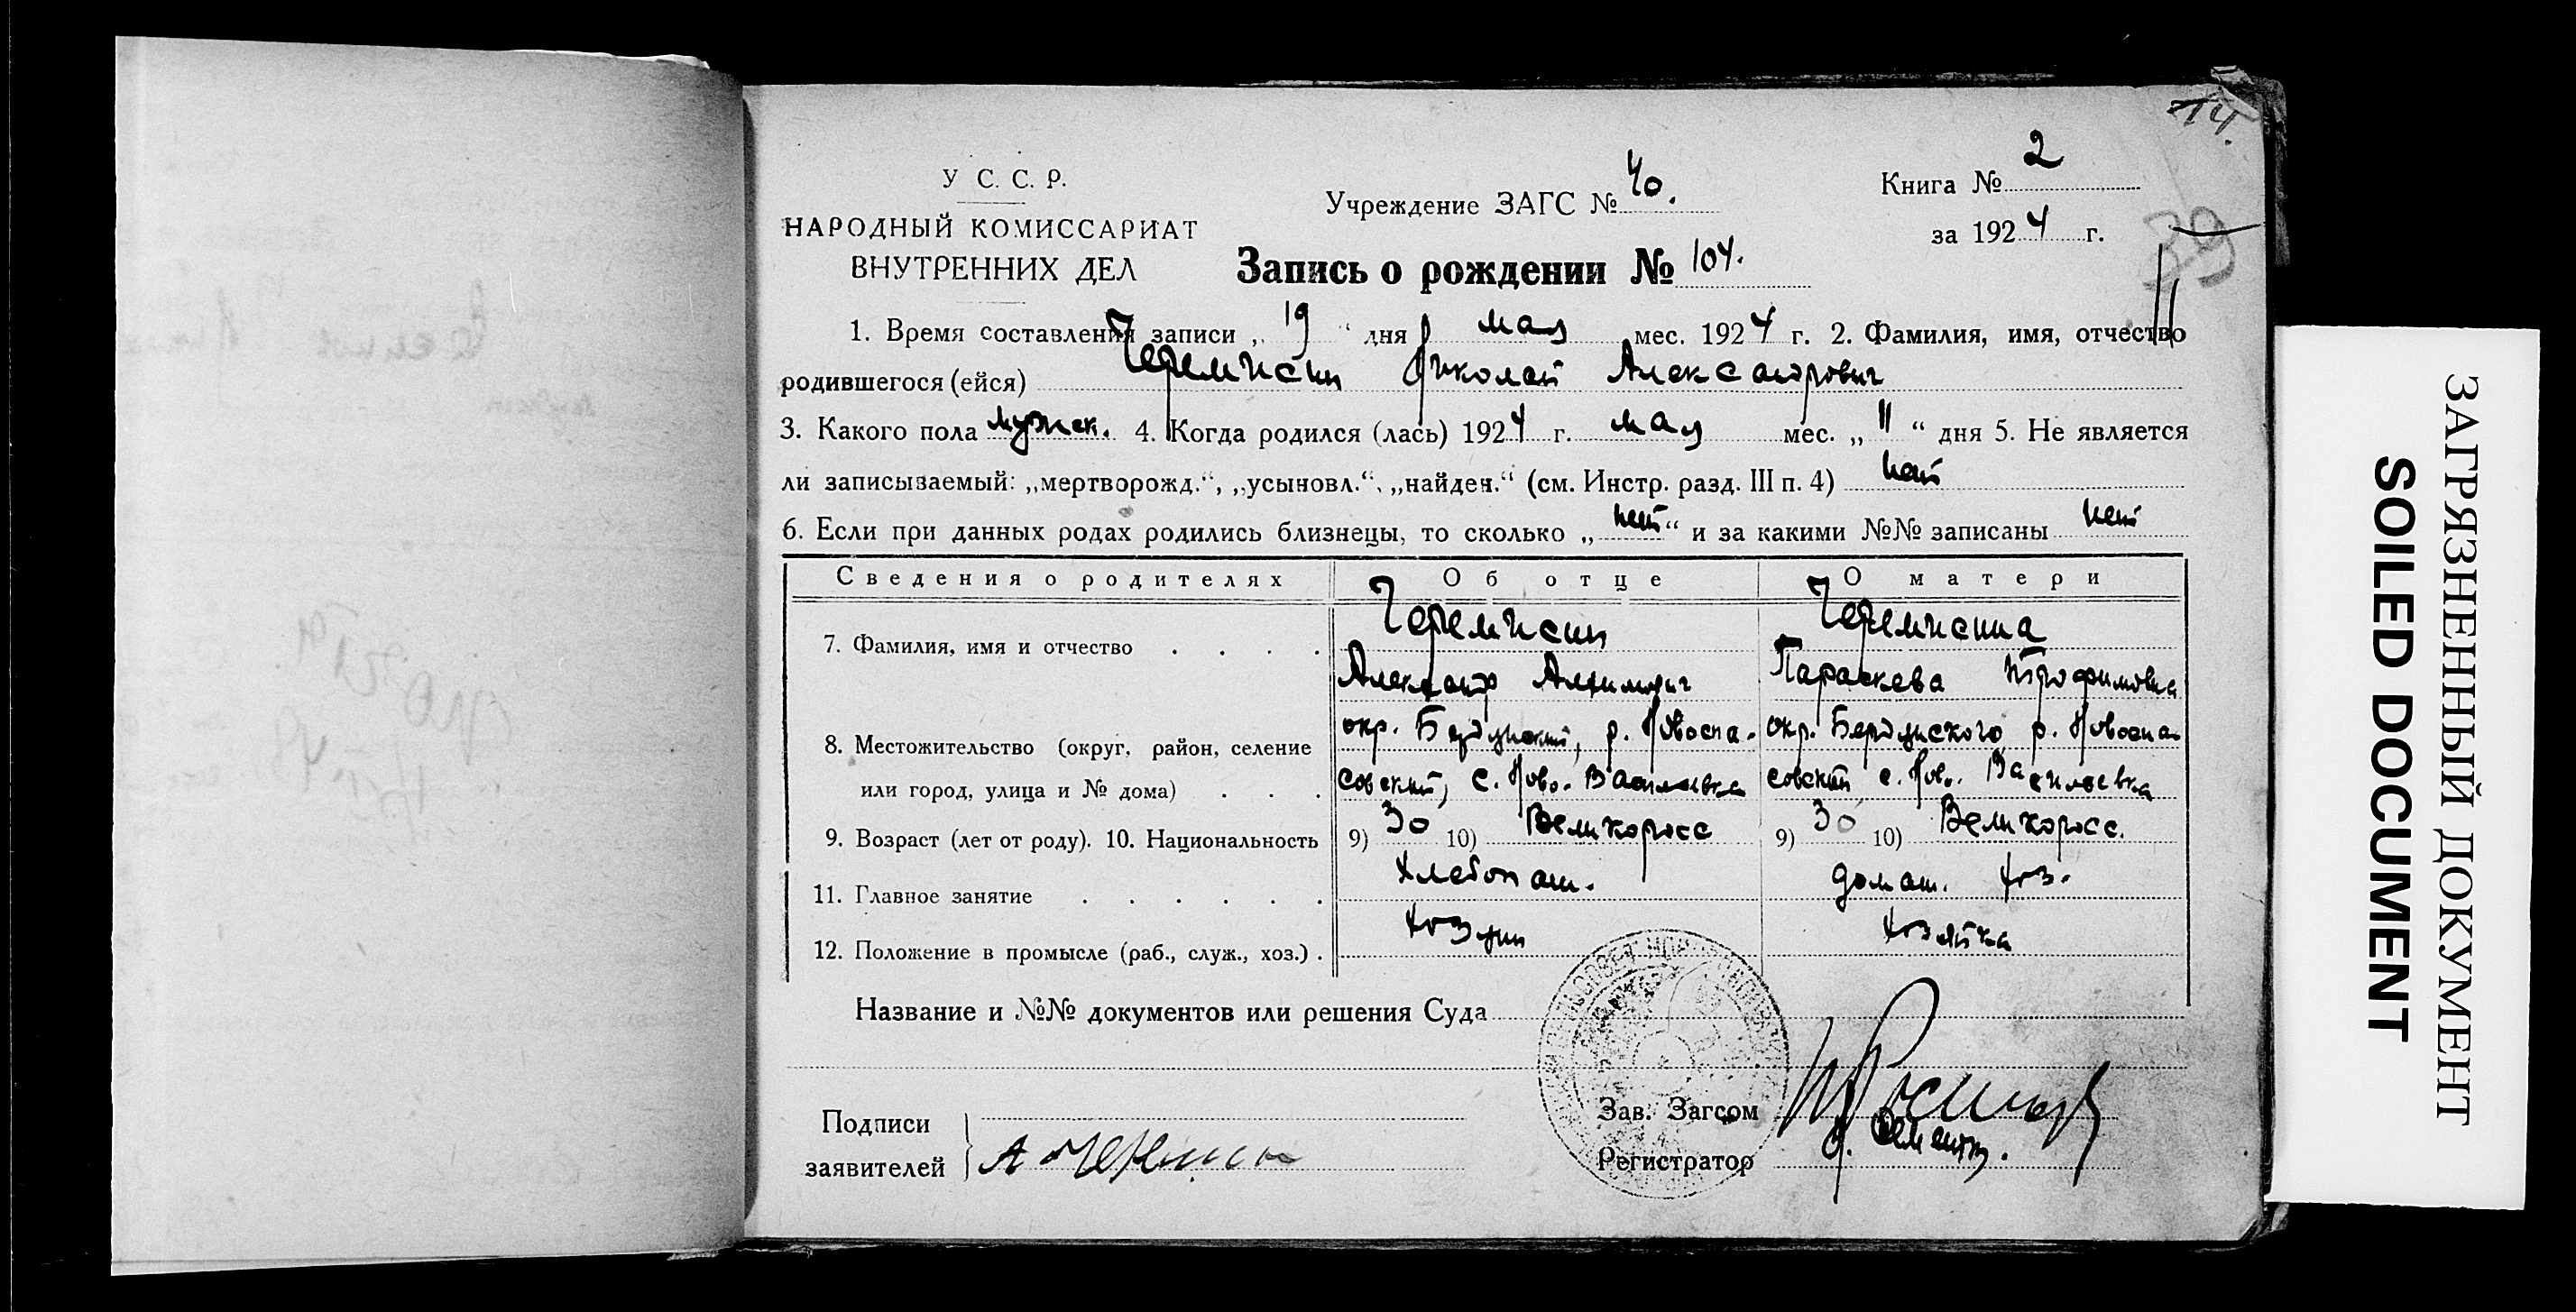 14.
У С. С. Р.
НАРОДНЫЙ КОМИССАРИАТ
ВНУТРЕННИХ ДЕЛ
Учреждение ЗАГС № 40.
Книга № 2
за 1924 г.
39
Запись о рождении № 104.
1. Время составления записи „ 19 “ дня мая мес. 1924 г. 2. Фамилия, имя, отчество
родившегося (ейся) Черемисин Николай Александрович
3. Какого пола мужск. 4. Когда родился (лась) 1924 г. мая мес. „ 11 “ дня 5. Не является
ли записываемый: „мертворожд.“, „усыновл.“, „найден.“ (см. Инстр. разд. III п. 4) нет
6. Если при данных родах родились близнецы, то сколько „ нет “ и за какими №№ записаны нет
Сведения о родителях Об отце О матери
7. Фамилия, имя и отчество Черемисин Черемисина
Александр Параскева Трофимовна
8. Местожительство (округ, район, селение окр. Бердянский, р. Новоспа- окр. Бердянского р. Новоспа-
или город, улица и № дома) совский, с. Ново. Васильевка совский с. Нов. Васильевка
9. Возраст (лет от роду). 10. Национальность 9) 30 10) Великоросс 9) 30 10) Великоросс.
11. Главное занятие Хлебопаш. домаш. хоз.
12. Положение в промысле (раб., служ., хоз.) хозяин хозяйка
Название и №№ документов или решения Суда
Подписи
заявителей
Зав. Загсом
Регистратор
ЗАГРЯЗНЕННЫЙ ДОКУМЕНТ
SOILED DOCUMENT